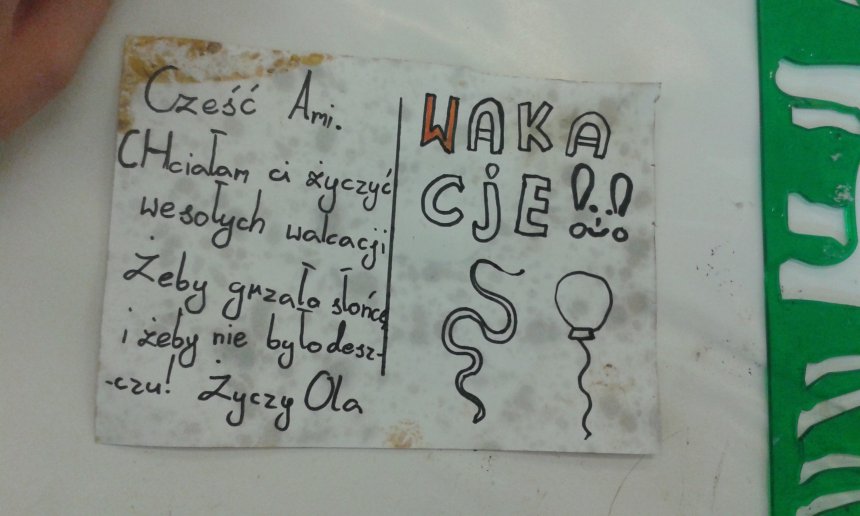 Cześć Ami.
CHciałam ci życzyć
wesołych wakacji
Żeby grzało słońce
i żeby nie było desz-
-czu! Życzy Ola
WAKA
CJE!!